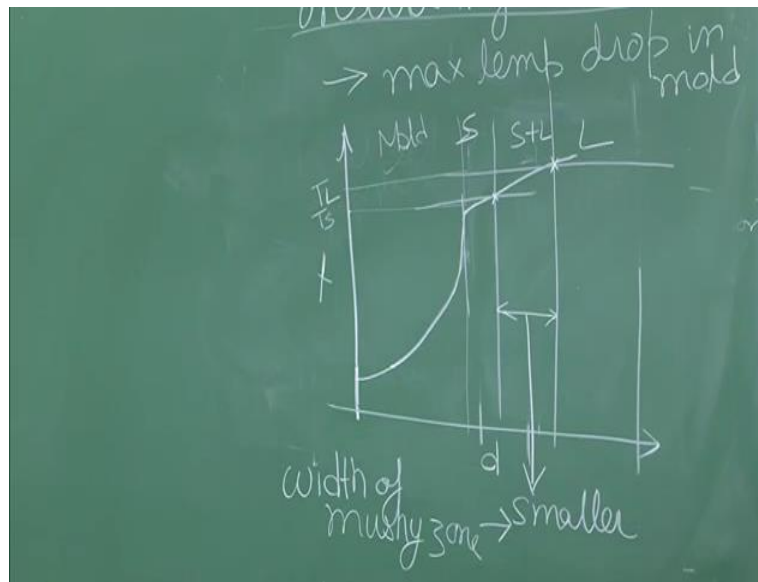 → max temp drop in
mold
Mold S S+L L
TL
TS
t
d
width of
mushy zone → smaller